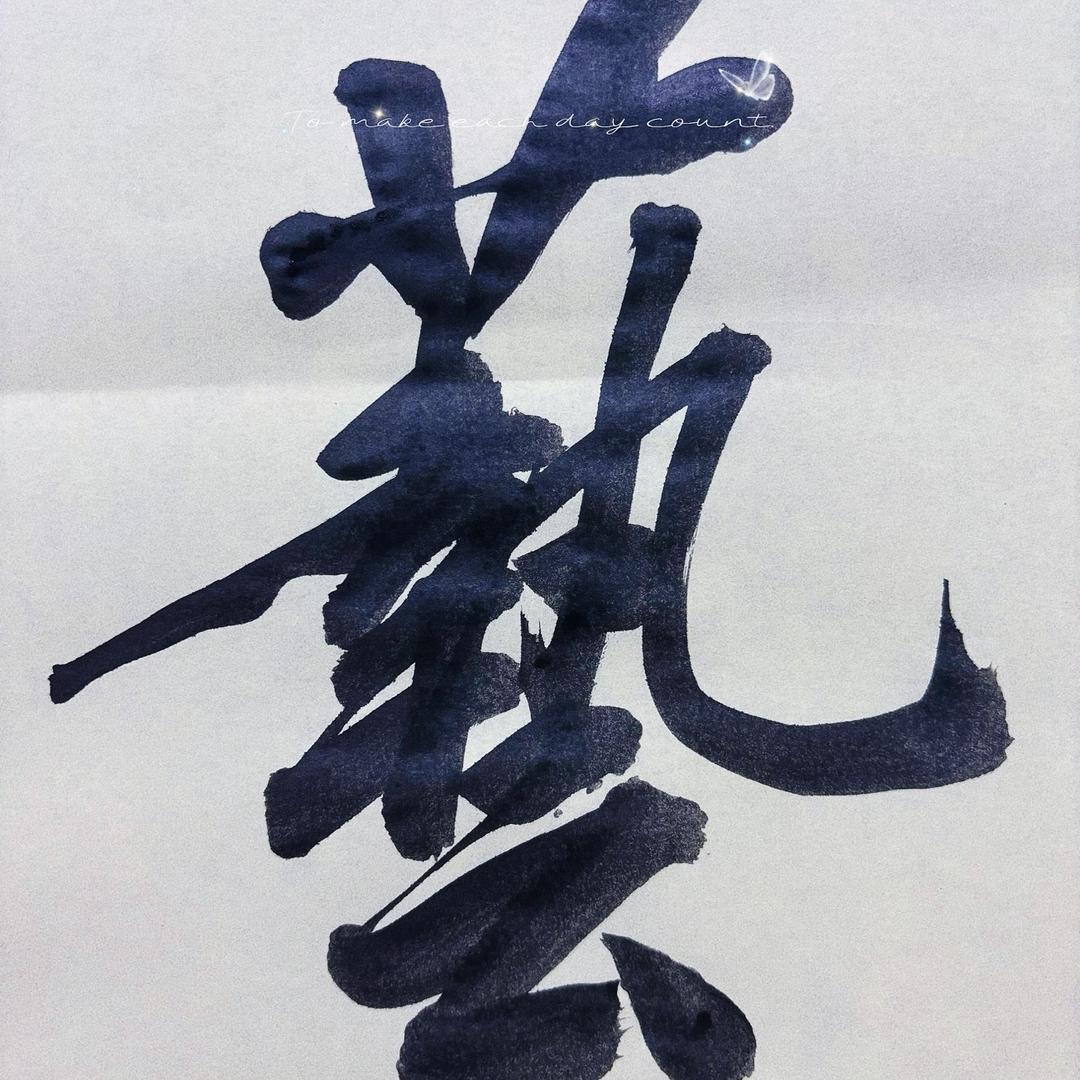 To make each day count
藝